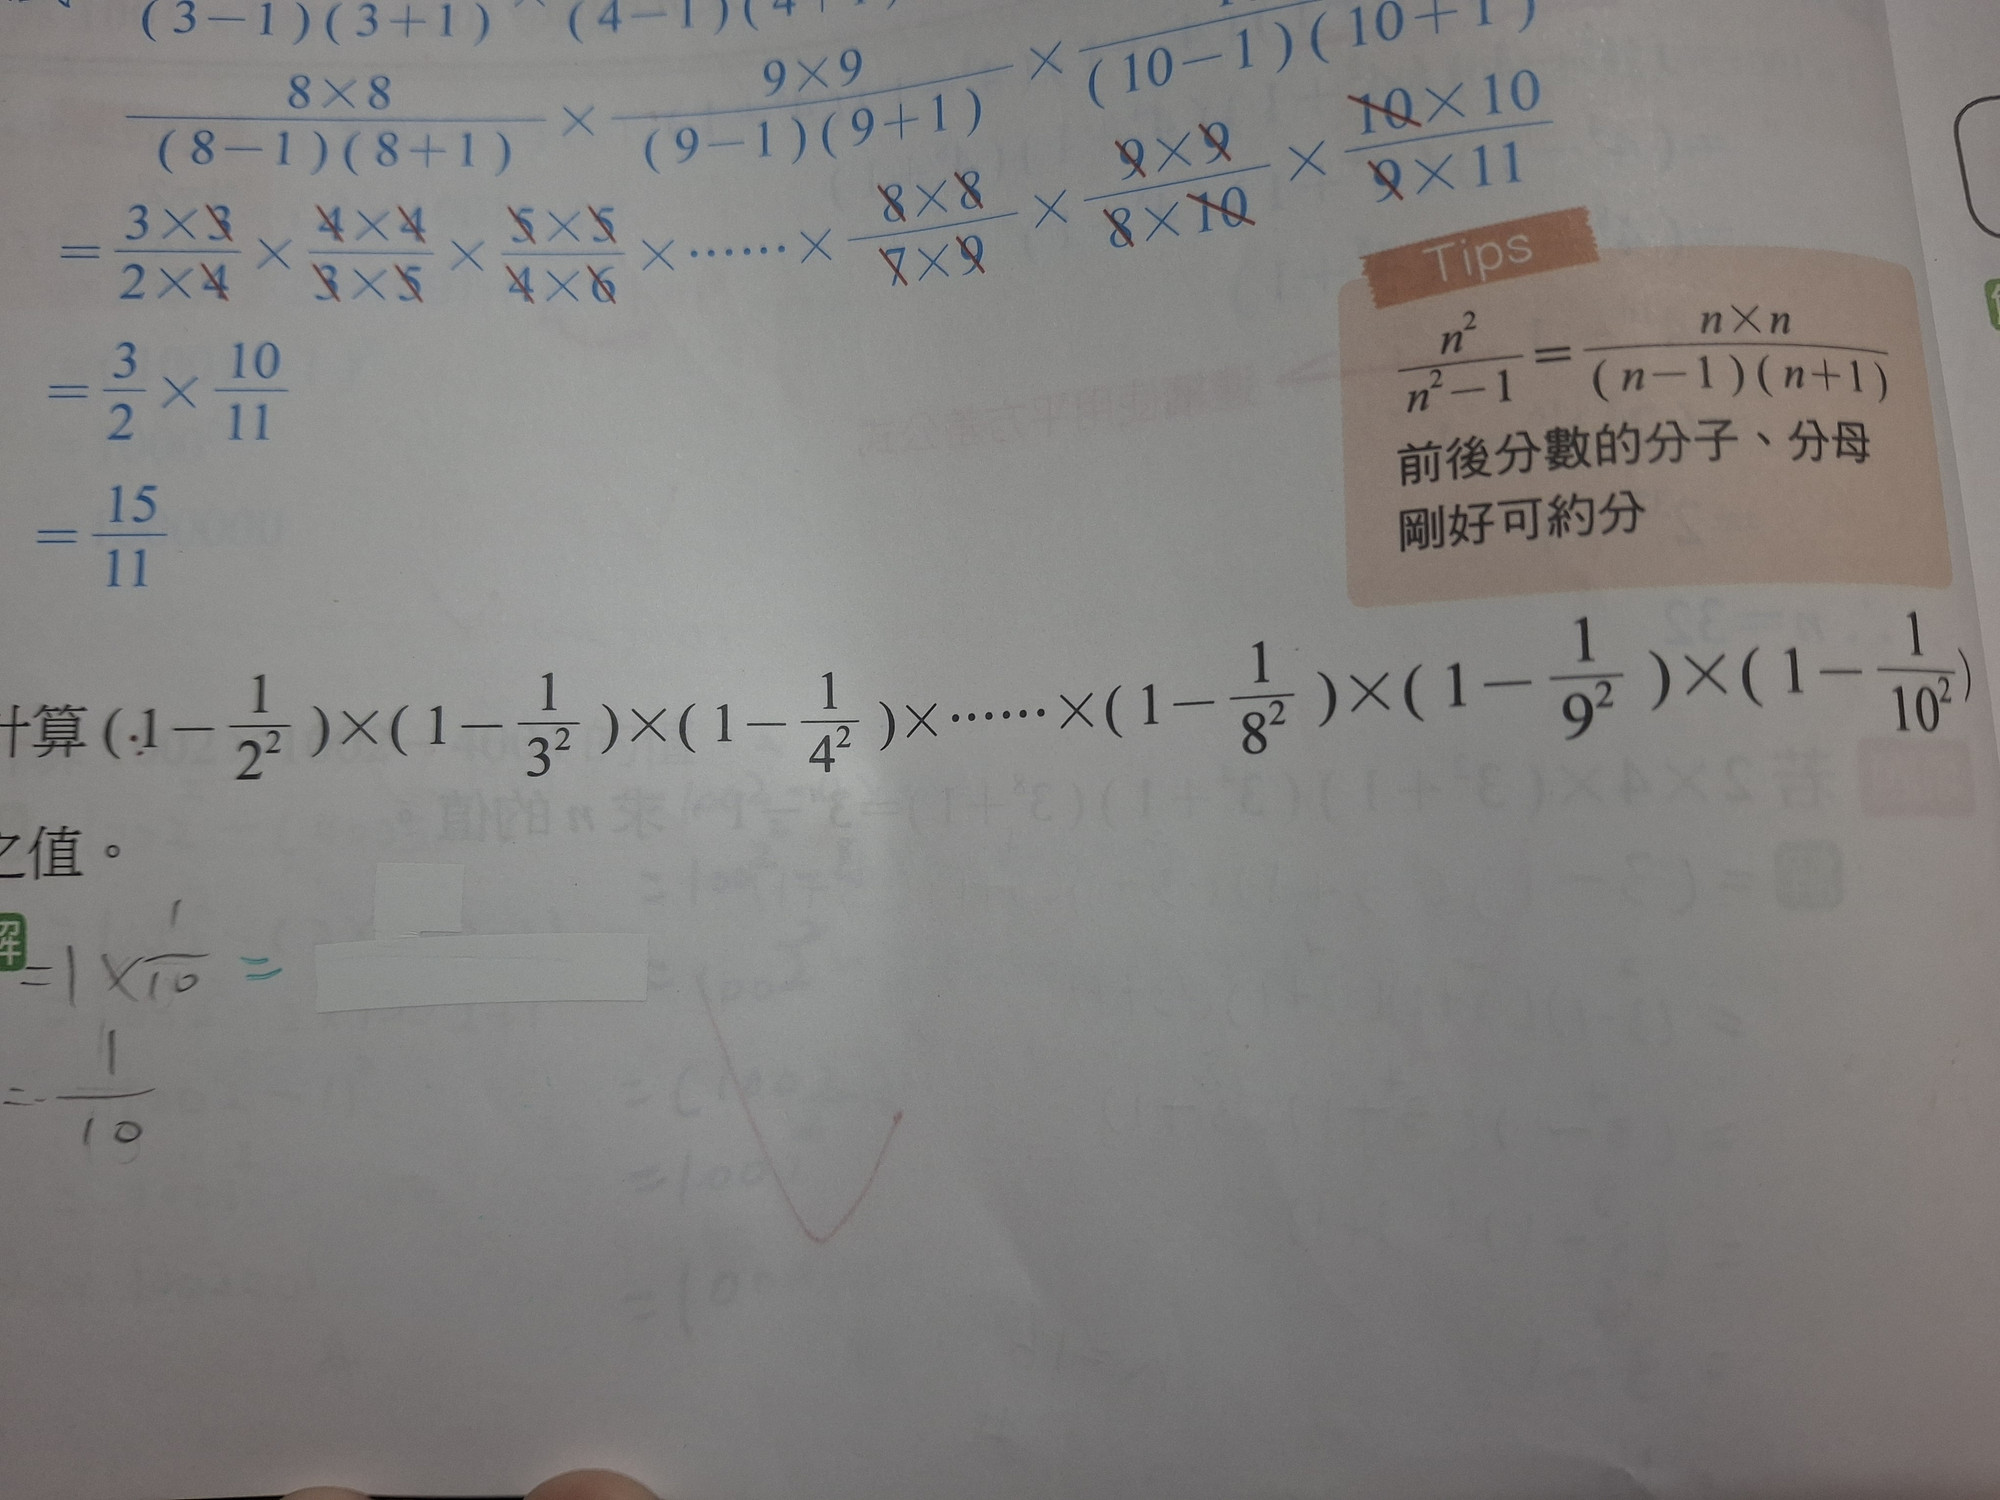 (3−1)(3+1) × (4−1)(4+1)
8×8/(8−1)(8+1) × 9×9/(9−1)(9+1) × /(10−1)(10+1)
= 3×3/2×4 × 4×4/3×5 × 5×5/4×6 ×……× 8×8/7×9 × 9×9/8×10 × 10×10/9×11
= 3/2 × 10/11
= 15/11
Tips
n²/n²−1 = n×n/(n−1)(n+1)
前後分數的分子、分母
剛好可約分
計算(1−1/2²)×(1−1/3²)×(1−1/4²)×……×(1−1/8²)×(1−1/9²)×(1−1/10²)
之值。
解
=1×1/10 =
=1/10